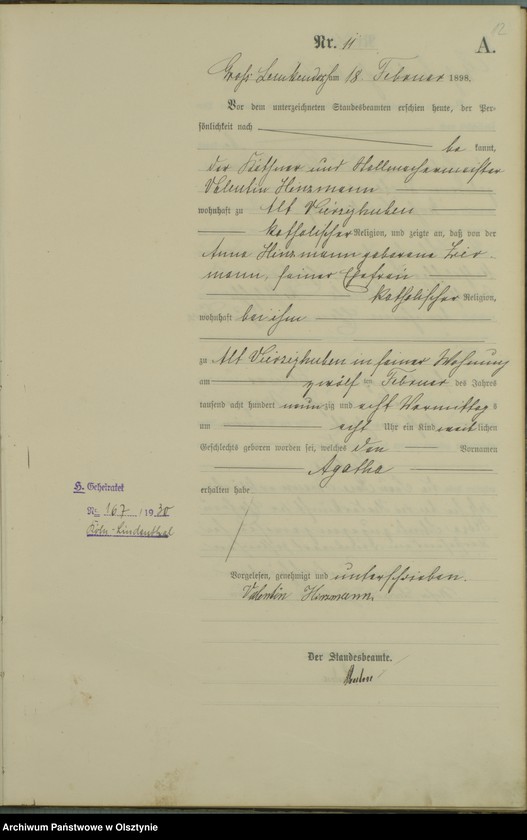 12
Nr. 11
A.
Groß Lemkendorf am 18 Februar 1898.
Vor dem unterzeichneten Standesbeamten erschien heute, der Per-
sönlichkeit nach
be kannt,
der Käthner und Stellmachermeister
Valentin Hinzmann
wohnhaft zu Alt Vierzighuben
katholischer Religion, und zeigte an, daß von der
Anna Hinzmann geborene
mann, seiner Ehefrau
katholischer Religion,
wohnhaft bei ihm
zu Alt Vierzighuben in seiner Wohnung
am zwölf ten Februar des Jahres
tausend acht hundert neunzig und acht Vormittags
um acht Uhr ein Kind weiblichen
Geschlechts geboren worden sei, welches den Vornamen
Agatha
erhalten habe
H. Geheiratet
Nr. 167 /1930
Köln-Lindenthal
Vorgelesen, genehmigt und unterschrieben.
Valentin Hinzmann
Der Standesbeamte.
Archiwum Państwowe w Olsztynie